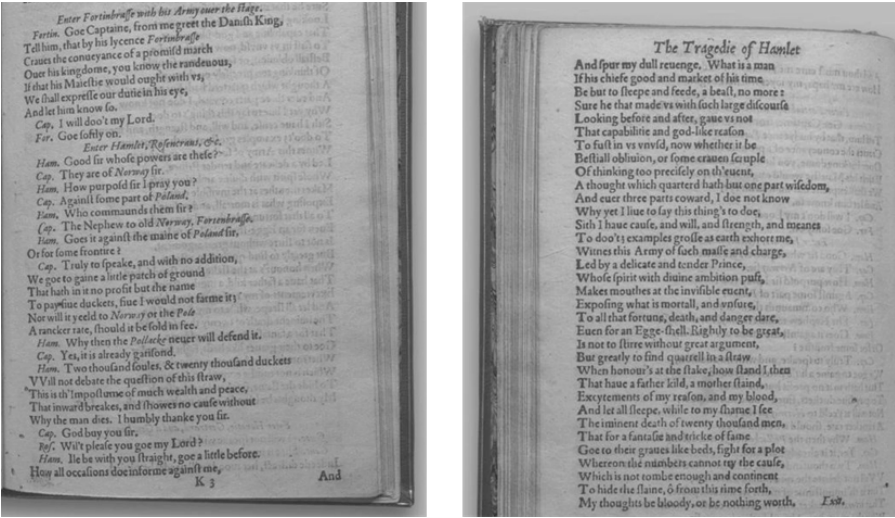 Enter Fortinbrasse with his Army ouer the stage.
Fortin. Goe Captaine, from me greet the Danish King,
Tell him, that by his lycence Fortinbrasse
Craues the conueyance of a promisd march
Ouer his kingdome, you know the randeuous,
If that his Maiestie would ought with vs,
We shall expresse our dutie in his eye,
And let him know so.
Cap. I will doo't my Lord.
For. Goe softly on.
Enter Hamlet, Rosencraus, &c.
Ham. Good sir whose powers are these?
Cap. They are of Norway sir.
Ham. How purposd sir I pray you?
Cap. Against some part of Poland.
Ham. Who commaunds them sir?
Cap. The Nephew to old Norway, Fortenbrasse.
Ham. Goes it against the maine of Poland sir,
Or for some frontire?
Cap. Truly to speake, and with no addition,
We goe to gaine a little patch of ground
That hath in it no profit but the name
To pay fiue duckets, fiue I would not farme it;
Nor will it yeeld to Norway or the Pole
A rancker rate, should it be sold in fee.
Ham. Why then the Pollacke neuer will defend it.
Cap. Yes, it is already garisond.
Ham. Two thousand soules, & twenty thousand duckets
VVill not debate the question of this straw,
This is th'Impostume of much wealth and peace,
That inward breakes, and showes no cause without
Why the man dies. I humbly thanke you sir.
Cap. God buy you sir.
Ros. Wil't please you goe my Lord?
Ham. Ile be with you straight, goe a little before.
How all occasions doe informe against me,
K 3 And
The Tragedie of Hamlet
And spur my dull reuenge. What is a man
If his chiefe good and market of his time
Be but to sleepe and feede, a beast, no more:
Sure he that made vs with such large discourse
Looking before and after, gaue vs not
That capabilitie and god-like reason
To fust in vs vnvsd, now whether it be
Bestiall obliuion, or some crauen scruple
Of thinking too precisely on th'euent,
A thought which quarterd hath but one part wisedom,
And euer three parts coward, I doe not know
Why yet I liue to say this thing's to doe,
Sith I haue cause, and will, and strength, and meanes
To doo't; examples grosse as earth exhort me,
Witnes this Army of such masse and charge,
Led by a delicate and tender Prince,
Whose spirit with diuine ambition puft,
Makes mouthes at the invisible euent,
Exposing what is mortall, and vnsure,
To all that fortune, death, and danger dare,
Euen for an Egge-shell. Rightly to be great,
Is not to stirre without great argument,
But greatly to find quarrell in a straw
When honour's at the stake, how stand I then
That haue a father kild, a mother staind,
Excytements of my reason, and my blood,
And let all sleepe, while to my shame I see
The iminent death of twenty thousand men,
That for a fantasie and tricke of fame
Goe to their graues like beds, fight for a plot
Whereon the numbers cannot try the cause,
Which is not tombe enough and continent
To hide the slaine, ô from this time forth,
My thoughts be bloody, or be nothing worth. Exit.